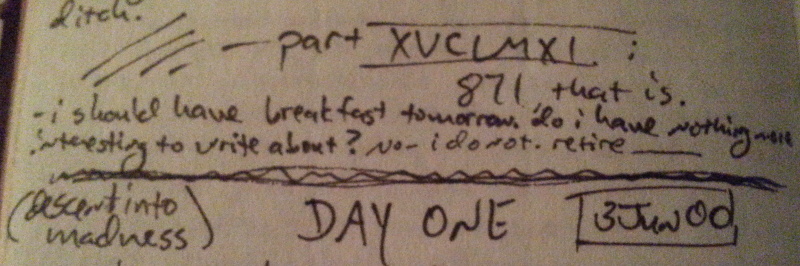 ditch.
- part XVCLMXI :
871, that is.
- i should have breakfast tomorrow. do i have nothing more
interesting to write about? no - i do not. retire
(descent into
madness)
DAY ONE
3 JUN 00